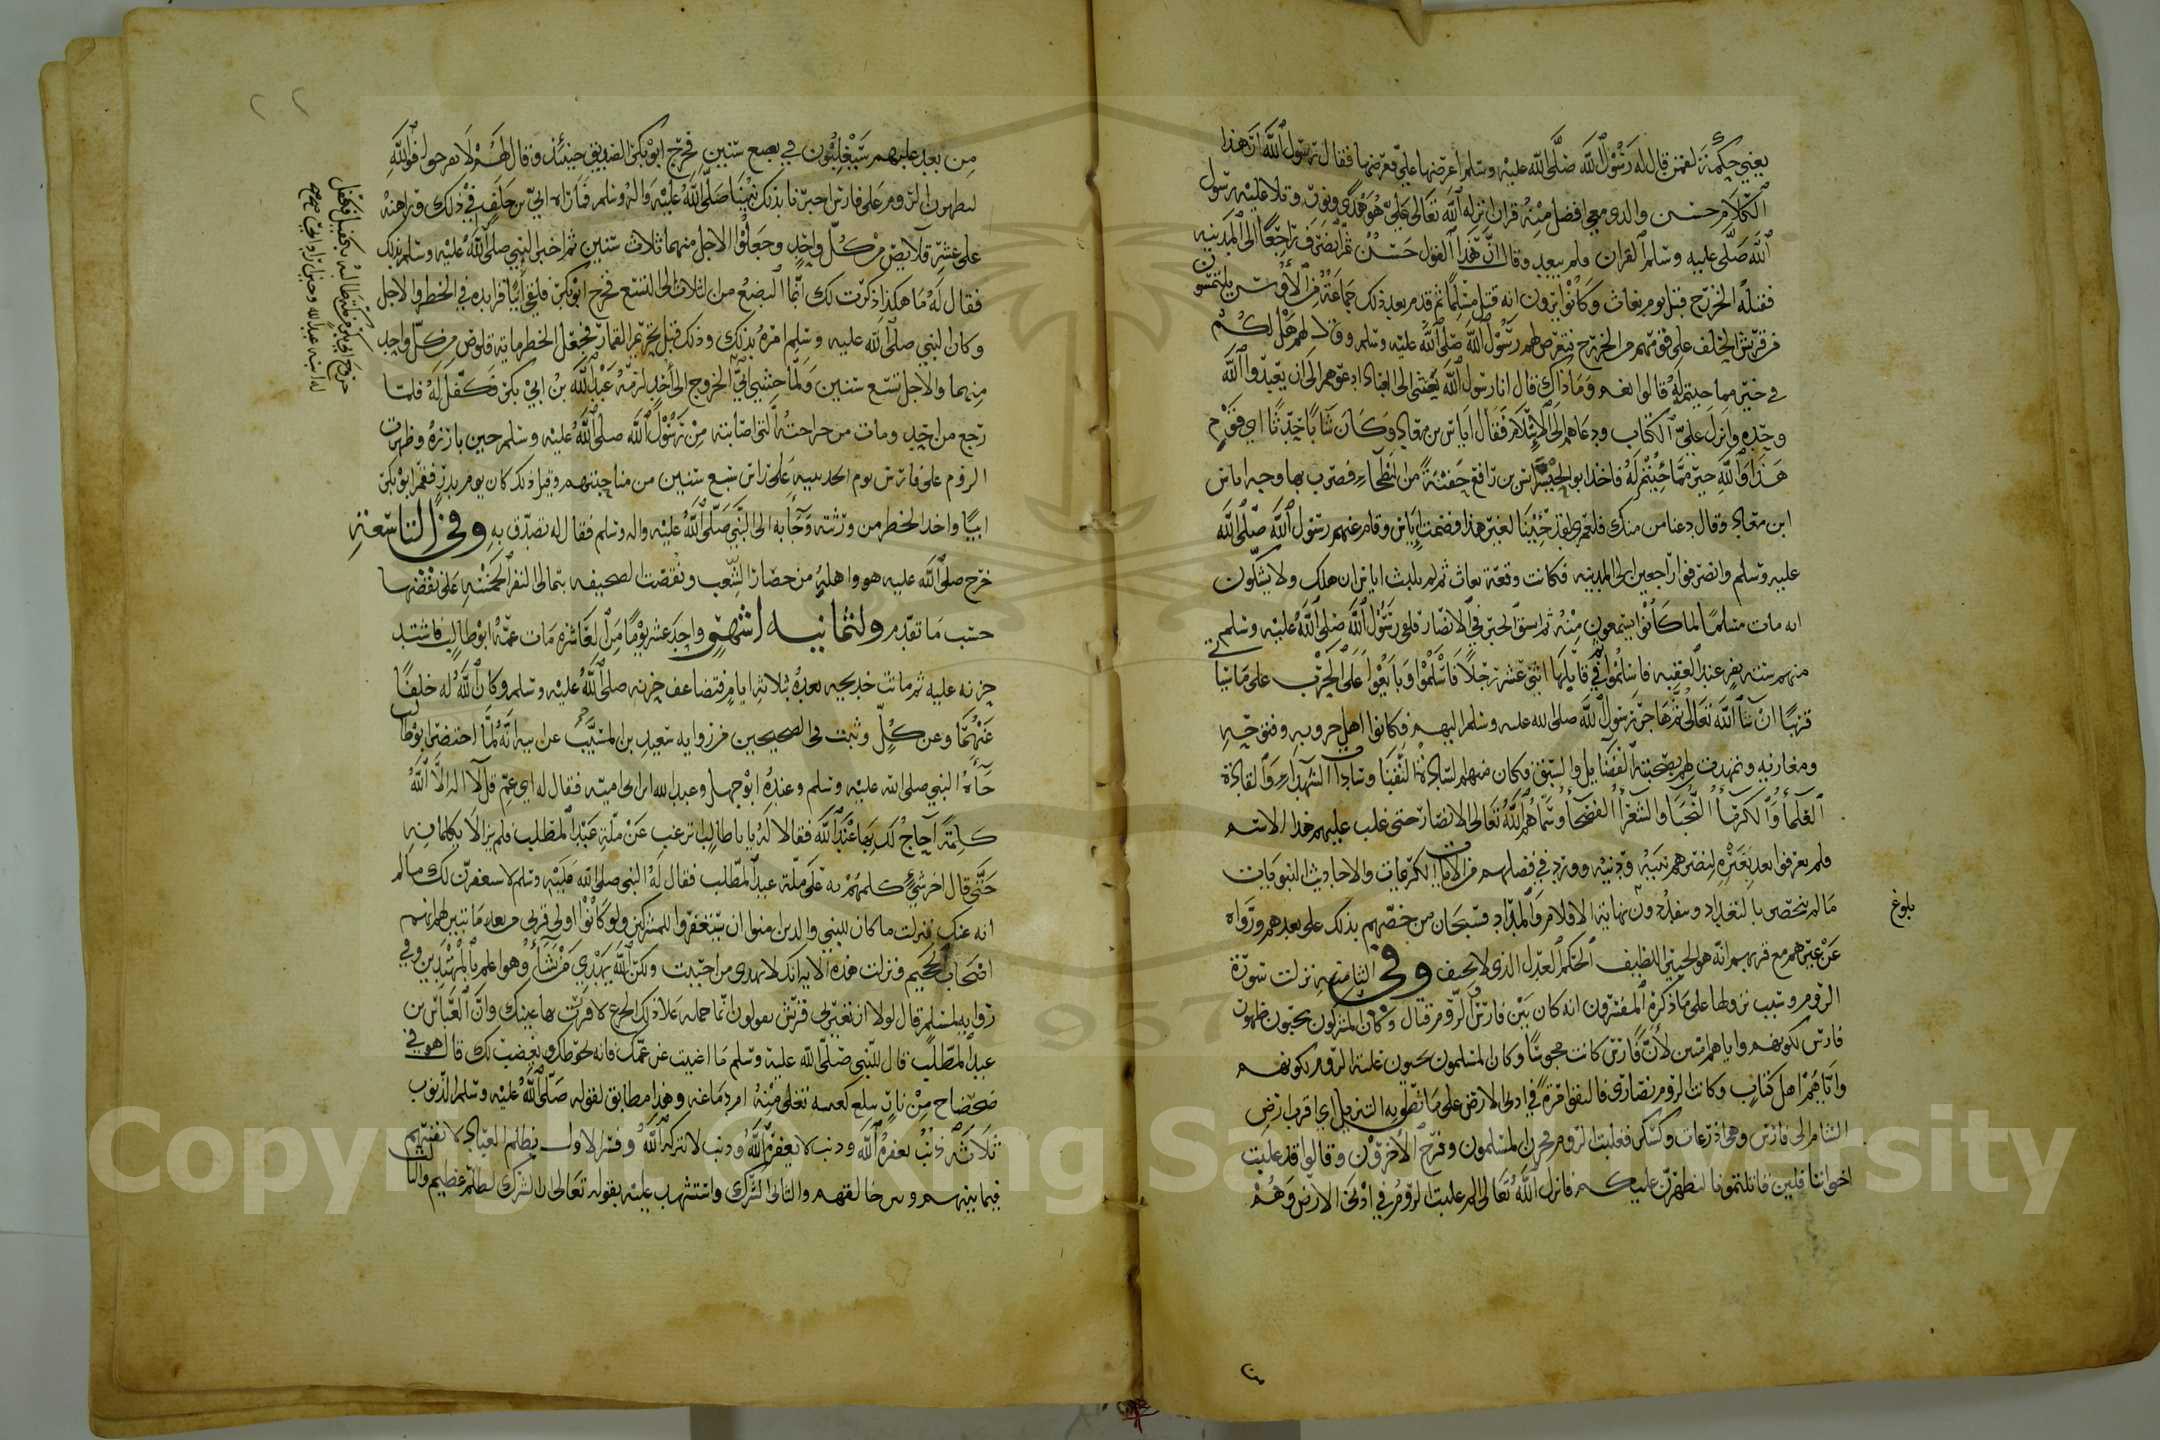 يعني حكمة لقمن قال له رسول الله صلى الله عليه وسلم اعرضها علي فعرضها فقال رسول الله ان هذا
الكلام حسن والذي معي افضل منه قران انزله الله تعالى علي هو هدى ونور وتلا عليه رسول
الله صلى عليه وسلم القران فلم يبعد وقال ان هذا القول حسن ثم انصرف راجعا الى المدينه
فقتله الخزرج قبل يوم بعاث وكانوا يرون انه قتل مسلما ثم قدم بعد ذلك جماعة من الأوس يلتمسون
من قريش الحلف على قومهم من الخزرج فتعرض لهم رسول الله صلى الله عليه وسلم وقال لهم هل لكم
في خير مما جيتم له قالوا نعم وما ذاك قال انا رسول الله بعثني الى العباد ادعوهم الى ان يعبدوا الله
وحده وانزل علي الكتاب ودعاهم الى الإسلام فقال اياس بن معاد وكان شابا حدثا اي قوم
هذا والله خير مما جئتم له فاخذ ابو الحيسر انس بن رافع حفنة من البطحاء فضرب بها وجه اياس
ابن معاد وقال دعنا من منك فلعمري لقد جئنا لغير هذا فصمت اياس وقام عنهم رسول الله صلى الله
عليه وسلم وانصرفوا راجعين الى المدينه فكانت وقعة بعاث ثم لم يلبث اياس ان هلك ولا يشكون
انه مات مسلما لما كانوا يسمعون منه ثم اسق الخبر في الانصار فلقي رسول الله صلى الله عليه وسلم
منهم ستة نفر عند العقبه فاسلموا ثم في قابلها اثنى عشر رجلا فاسلموا وبايعوا على الحرب على ما سيا
قريبا ان شا الله تعالى ثم هاجر رسول الله صلى الله عليه وسلم اليهم فكانوا اهل حروبه وفتوحه
ومغازيه وتمهدت لهم بصحبته الفضايل والسبق وكان منهم السادة النقبا وسادات الشهدا والقادة
العلما والكرما النجبا والشعرا الفصحا وسماهم الله تعالى الانصار حتى غلب عليهم هذا الاسم
فلم يعرفوا بعد بغيره لنصرهم نبيه ودينه وورد في فضلهم من الايات الكريمات والاحاديث النبويات
ما لم ينحصر بالتعداد وينفد دون نهايته الاقلام والمداد فسبحان من خصهم بذلك على بعدهم وزواه
عن غيرهم مع قربهم انه هو الخبير اللطيف الحكم العدل الذي لا يحيف وفي الثامنة نزلت سورة
الروم وسبب نزولها على ما ذكره المفسرون انه كان بين فارس والروم قتال وكان المشركون يحبون ظهور
فارس لكونهم واياهم اميين لأن فارس كانت مجوسا وكان المسلمون يحبون غلبة الروم لكونهم
واياهم اهل كتاب وكانت الروم نصارى فالتقوا مرة في ادنى الارض على ما نطق به التنزيل اي اقرب ارض
الشام الى فارس وهي اذرعات وكسكر فغلبت الروم فحزن المسلمون وفرح الأخرون وقالوا قد غلبت
اخواننا فلين قاتلتمونا لنظهرن عليكم فانزل الله تعالى الم غلبت الروم في ادنى الارض وهم
بلوغ
من
من بعد غلبهم سيغلبون في بضع سنين فخرج ابو بكر الصديق حينئذ وقال لهم لا تفرحوا فوالله
ليظهرن الروم على فارس اخبرنا بذلك نبينا صلى الله عليه واله وسلم فماراه ابي بن خلف في ذلك وراهنه
على عشر قلايص من كل واحد وجعلوا الاجل منهما ثلاث سنين ثم اخبر النبي صلى الله عليه وسلم بذلك
فقال له ما هكذا ذكرت لك انما البضع من الثلاث الى التسع فخرج ابو بكر فلقي أبيا فزايده في الخطر والاجل
وكان النبي صلى الله عليه وسلم امره بذلك وذلك قبل تحريم القمار فجعل الخطر ماية قلوص من كل واحد
منهما والاجل تسع سنين ولما خشي ابي الخروج الى أحد لزمه عبد الله بن ابي بكر فكفل له فلما
رجع من احد ومات من جراحته التي اصابته من رسول الله صلى الله عليه وسلم حين بارزه وظهرت
الروم على فارس يوم الحديبيه على راس سبع سنين من مناحبتهم وقيل ذلك كان يوم بدر فقمر ابو بكر
ابيا واخذ الخطر من ورثته وجا به الى النبي صلى الله عليه واله وسلم فقال له تصدق به وفي التاسعة
خرج صلى الله عليه هو واهله من حصار الشعب ونقضت الصحيفه بتمالى النفر الخمسة على نقضها
حسب ما تقدم ولثمانيه اشهر واحد عشر يوما من العاشره مات عمه ابو طالب فاشتد
حزنه عليه ثم ماتت خديجه بعده بثلاثة ايام فتضاعف حزنه صلى الله عليه وسلم وكان الله له خلفا
عنهما وعن كل وثبت في الصحيحين من رواية سعيد بن المسيب عن ابيه أنه لما احتضر ابو طالب
جآه النبي صلى الله عليه وسلم وعنده ابو جهل وعبد الله ابن ابي امية فقال له اي عم قل لا اله الا الله
كلمة احاج لك بها عند الله فقالا له يا ابا طالب اترغب عن ملة عبد المطلب فلم يزالا يكلمانه
حتى قال اخر شيء كلمهم به على ملة عبد المطلب فقال له النبي صلى الله عليه وسلم لاستغفرن لك ما لم
انه عنك فنزلت ما كان للنبي والذين امنوا ان يستغفروا للمشركين ولو كانوا اولي قربى من بعد ما تبين لهم انهم
اصحاب الجحيم ونزلت هذه الايه انك لا تهدي من احببت ولكن الله يهدي من يشاء وهو اعلم بالمهتدين وفي
رواية لمسلم قال لولا ان تعيرني قريش يقولون انما حمله على ذلك الجزع لاقررت بها عينك وأن العباس بن
عبد المطلب قال للنبي صلى الله عليه وسلم ما اغنيت عن عمك فانه يحوطك ويغضب لك قال هو في
ضحضاح من نار يبلغ كعبيه تغلي منه ام دماغه وهذا مطابق لقوله صلى الله عليه وسلم الذنوب
ثلاثة ذنب يغفره الله وذنب لا يغفره الله وذنب لا يتركه الله وفسر الاول بظلم العباد لانفسهم
فيما بينهم وبين خالقهم والثاني الشرك واستشهد عليه بقوله تعالى ان الشرك لظلم عظيم والثالث
خروج ابي بكر من مكة طالبه بكفيل فكفل
له ابنه عبد الله وحين اراد ابي صح
٢٢
Copyright © King Saud University
1957